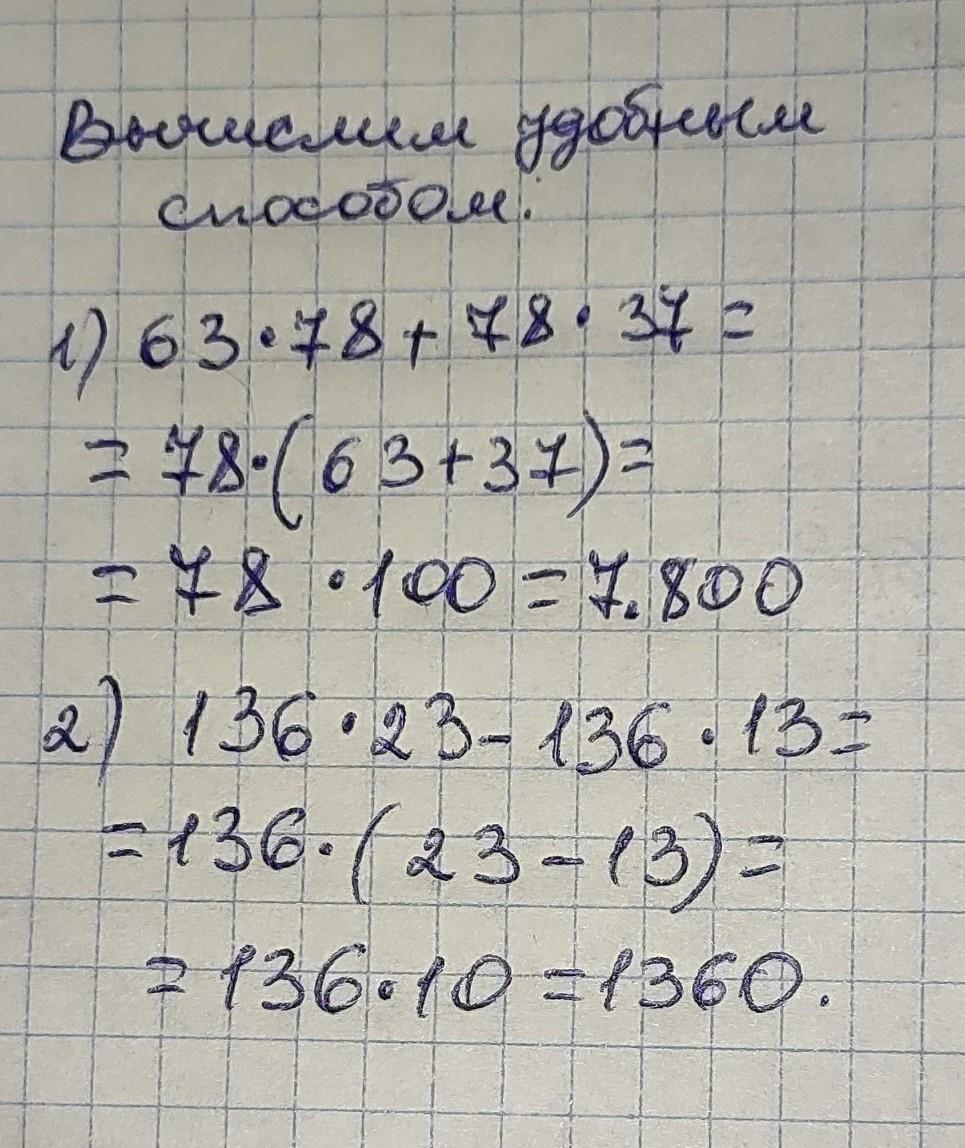 Вычислим удобным
способом:
1) 63·78+78·37=
=78·(63+37)=
=78·100=7.800
2) 136·23-136·13=
=136·(23-13)=
=136·10=1360.